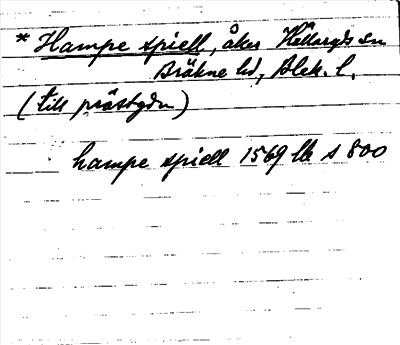 * Hampe spiell, åker Hällaryds sn
Bräkne hd, Blek. l.
(till prästgdn)
hampe spiell 1569 llb s 800